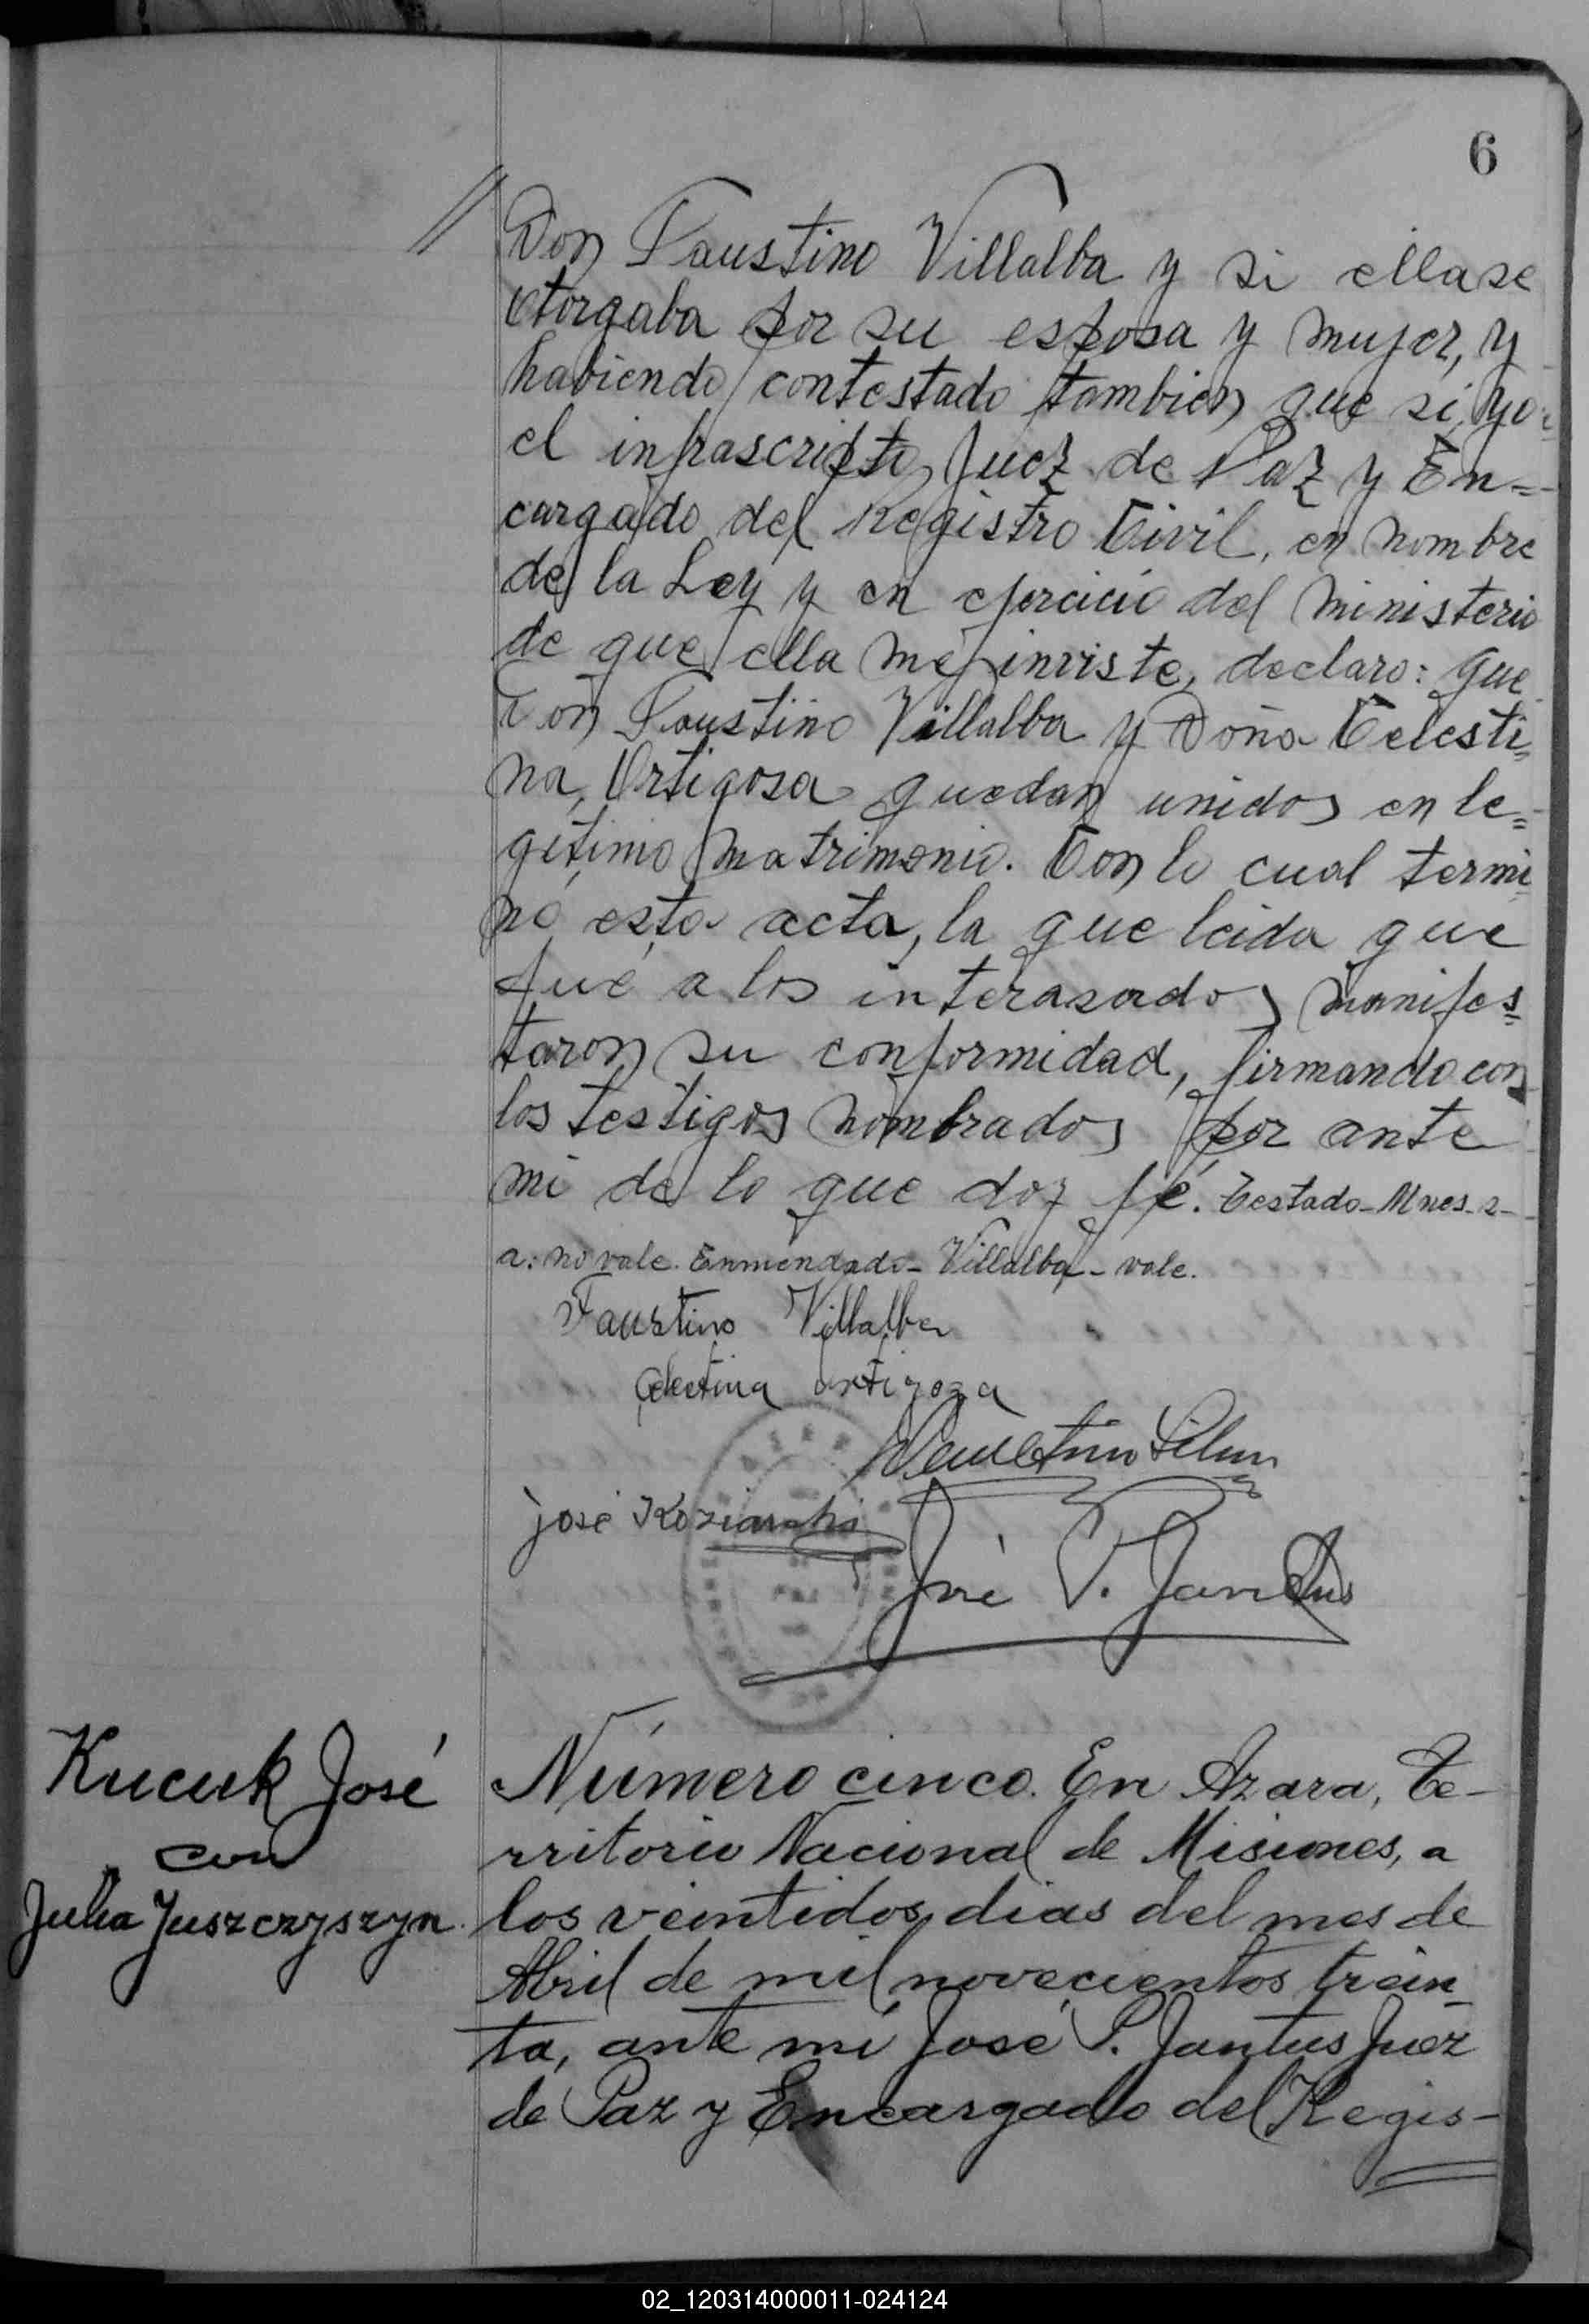 6
// Don Faustino Villalba y si ella se
otorgaba por su esposa y mujer, y
habiendo contestado tambien que si, yo
el infrascripto Juez de Paz y En=
cargado del Registro Civil, en nombre
de la Ley y en ejercicio del ministerio
de que ella me inviste, declaro: que
Don Faustino Villalba y Doña Celesti=
na, Ortigosa quedan unidos en le=
gitimo matrimonio. Con lo cual termi=
nó esta acta, la que leida que
fué a los interasados manifes=
taron su conformidad, firmando con
los testigos nombrados por ante
mi de lo que doy fé. Testado-Mnes-2-
a: no vale. Enmendado- Villalba- vale.
Faustino Villalba
Celectina ortigoza
José
José P. Jantus
Kucuk José
con
Julia Juszczyszyn
Número cinco. En Azara, Te-
rritorio Nacional de Misiones, a
los veintidos dias del mes de
Abril de mil novecientos trein-
ta, ante mi José P. Jantus Juez
de Paz y Encargado del Regis-
02_120314000011-024124